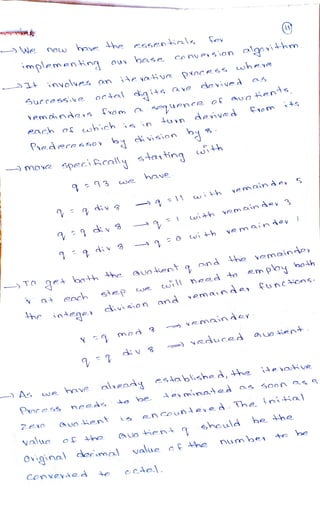 11
→ We now have the essentials for
implementing our base conversion algorithm
→ It involves an iterative process where
successive octal digits are derived as
remainders from a sequence of quotients,
each of which is in turn derived from its
predecessor by division by 8.
→ more specifically starting with
q = 93 we have
q = q div 8 → q = 11 with remainder 5
q = q div 8 → q = 1 with remainder 3
q = q div 8 → q = 0 with remainder 1
→ To get both the quotient q and the remainder
r at each step we will need to employ both
the integer division and remainder functions.
r = q mod 8 → remainder
q = q div 8 → reduced quotient.
→ As we have already established, the iterative
process needs to be terminated as soon as a
zero quotient is encountered. The initial
value of the quotient q should be the
original decimal value of the number to be
converted to octal.